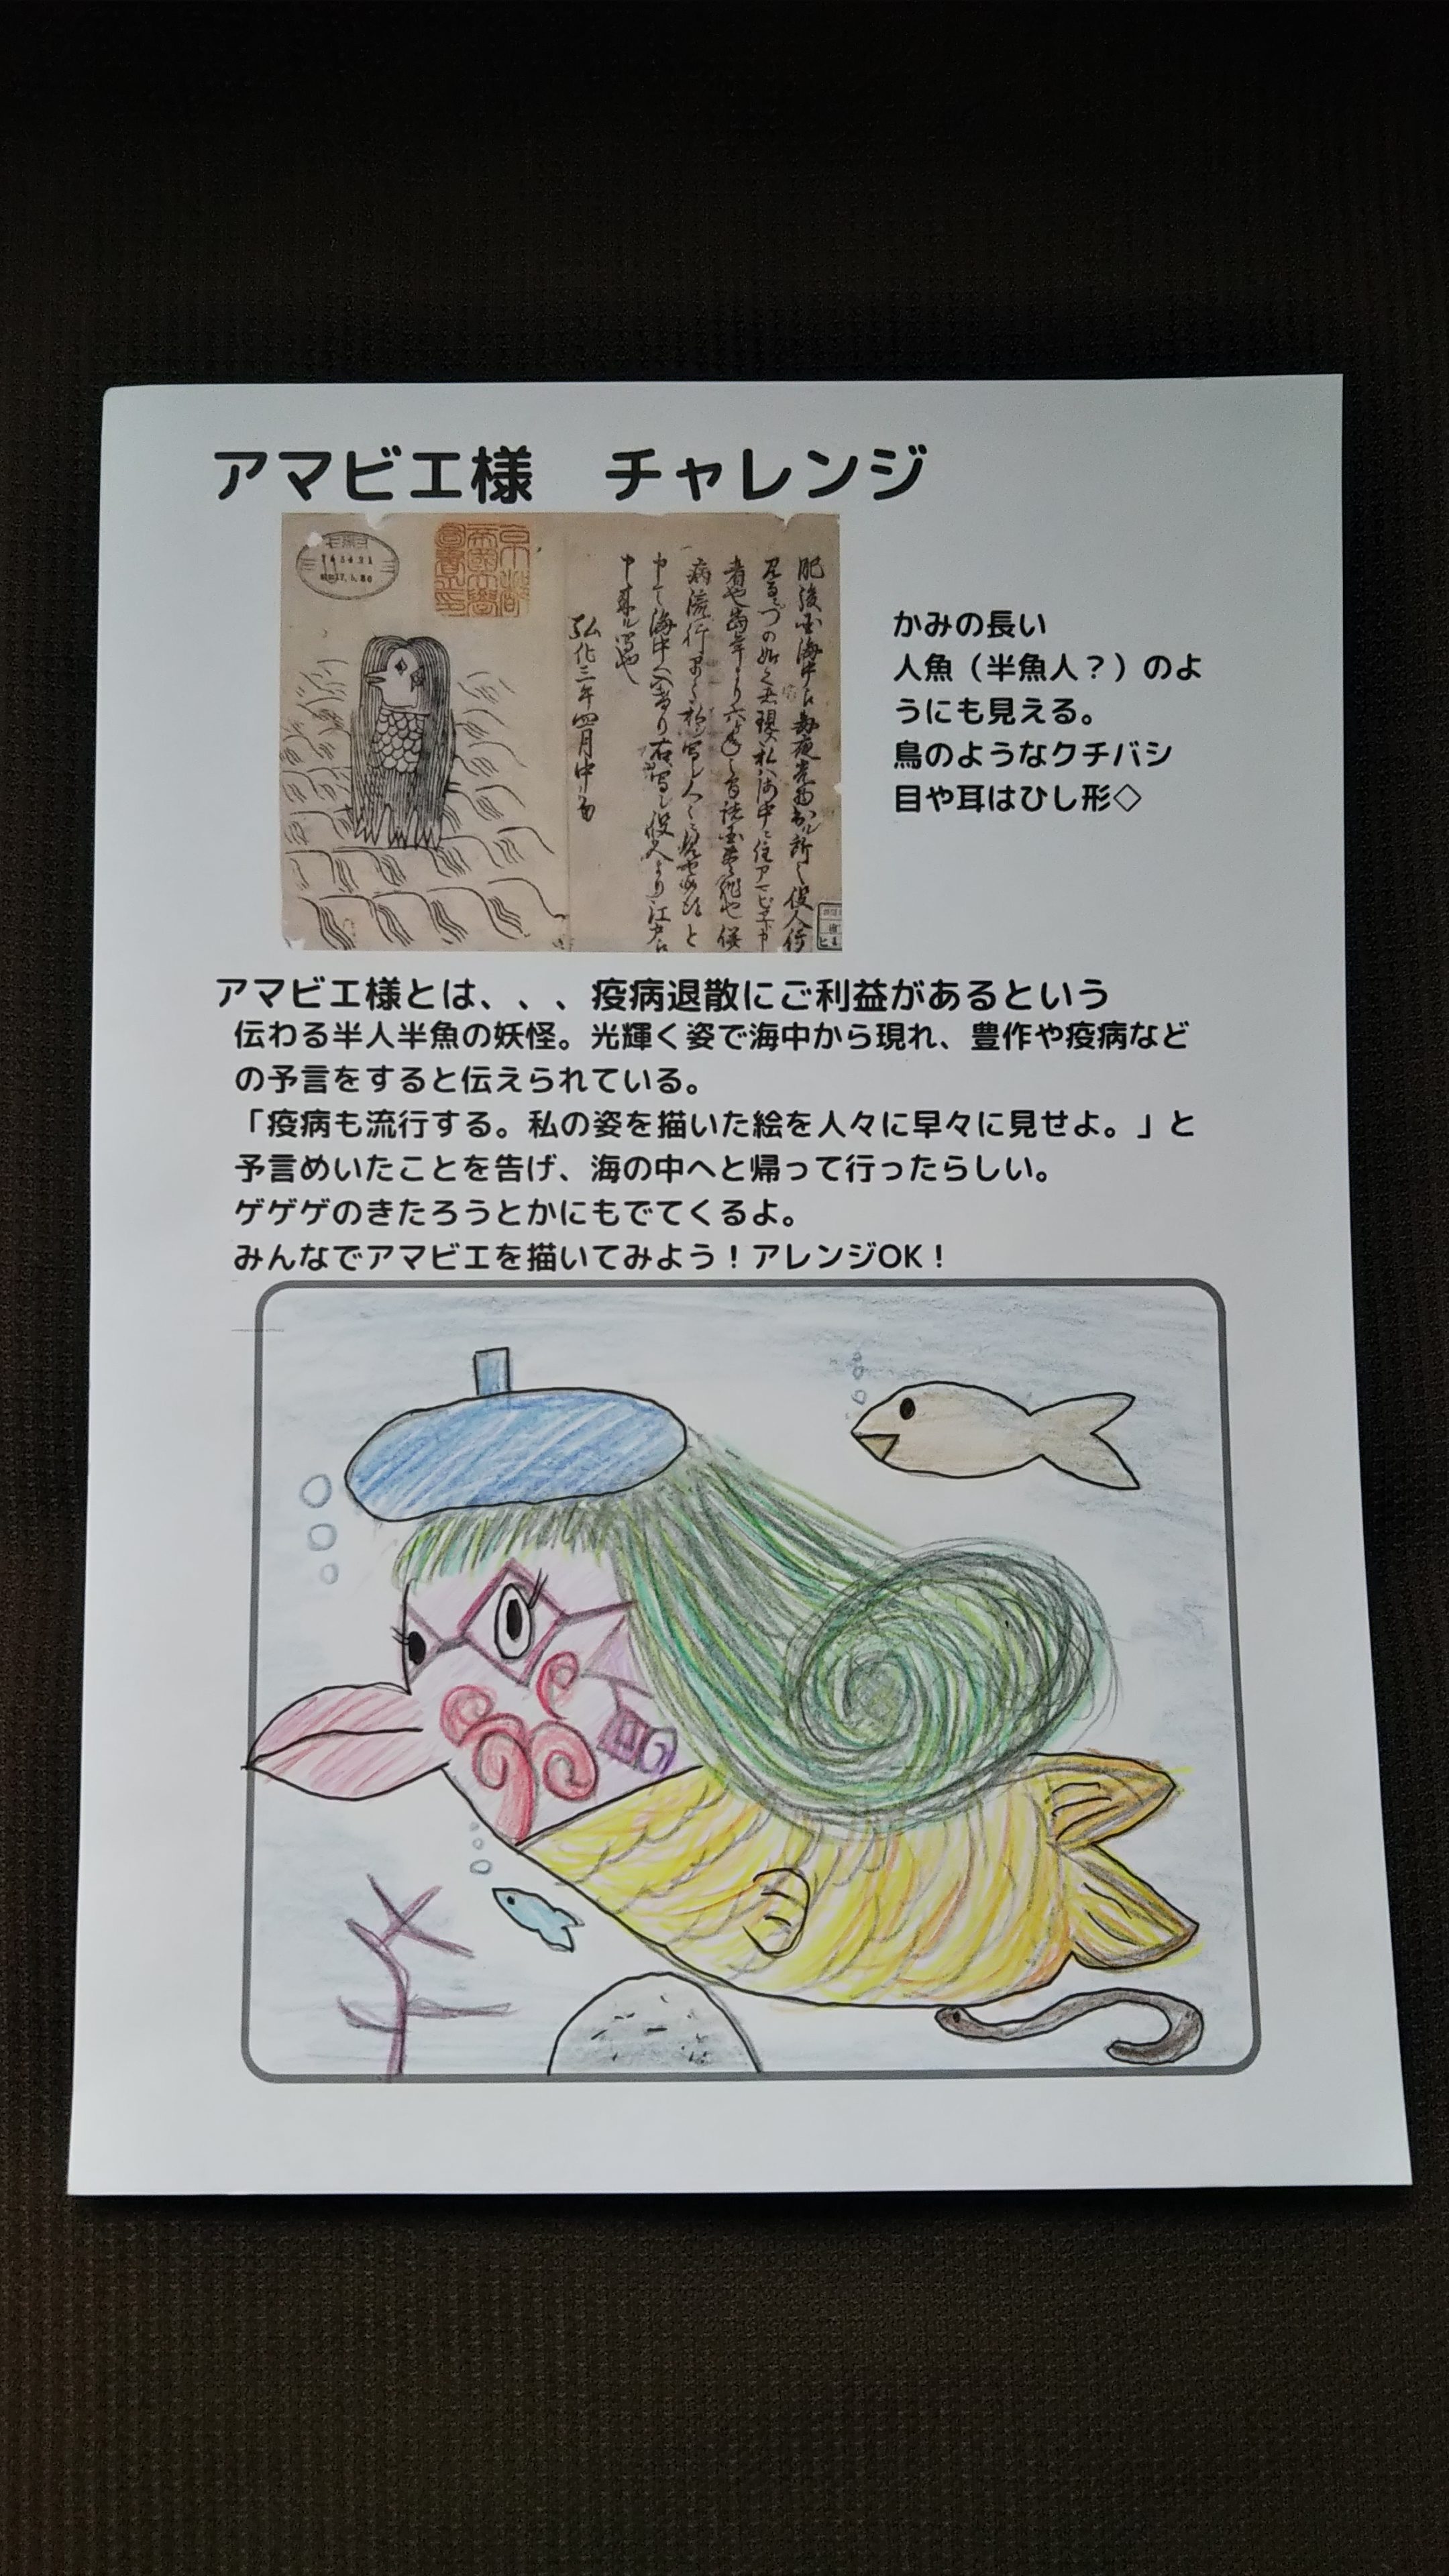 アマビエ様　チャレンジ
かみの長い
人魚（半魚人？）のよ
うにも見える。
鳥のようなクチバシ
目や耳はひし形◇
肥後国海中え毎夜光物出ル所之役人行
見るニづの如く者現ス私ハ海中ニ住アマビヱト申
者也当年より六ヶ年之間諸国豊作也併
病流行早々私ヲ写シ人々ニ見セ候得と
申て海中へ入けり右写シ役人より江戸え
申来ル写也
弘化三年四月中旬
アマビエ様とは、、、疫病退散にご利益があるという
伝わる半人半魚の妖怪。光輝く姿で海中から現れ、豊作や疫病など
の予言をすると伝えられている。
「疫病も流行する。私の姿を描いた絵を人々に早々に見せよ。」と
予言めいたことを告げ、海の中へと帰って行ったらしい。
ゲゲゲのきたろうとかにもでてくるよ。
みんなでアマビエを描いてみよう！アレンジOK！